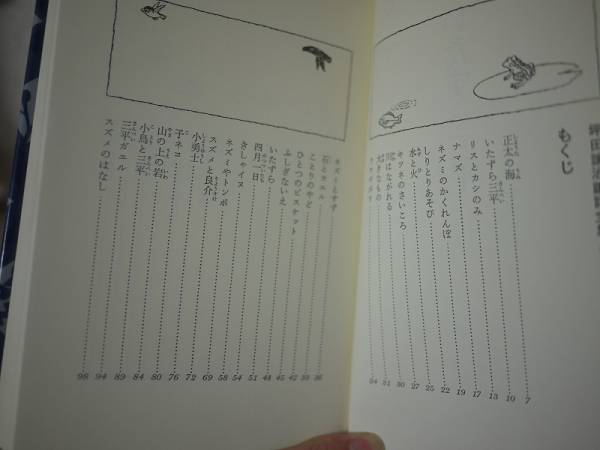 もくじ
正太の海 7
いたずら三平 10
リスとカシのみ 13
ナマズ 17
ネズミのかくれんぼ 19
しりとりあそび 22
水と火 25
キツネのさいころ 27
川はながれる 30
大きなもの 31
34
ネズミとすず 36
石とカエル
ことりのやど
ひとつのビスケット 45
ふしぎないえ 48
いたずら 51
四月一日 54
きしゃイヌ 58
ネズミやトンボ 69
スズメと良介 72
小勇士 76
子ネコ 80
山の上の岩 84
小鳥と三平 89
三平ガエル 94
スズメのはなし 98